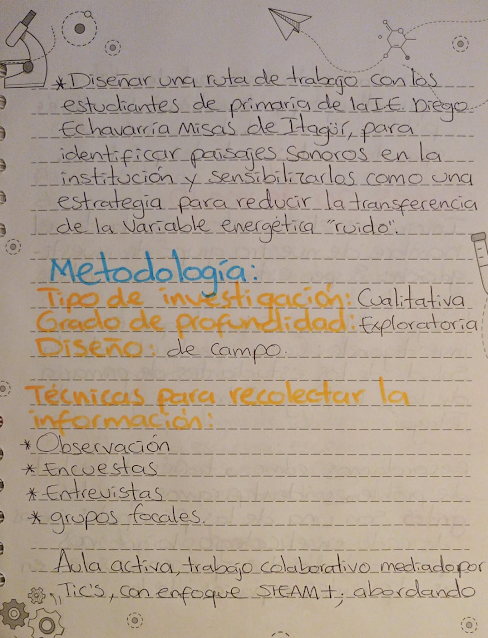 * Diseñar una ruta de trabajo con los
estudiantes de primaria de la I.E. Diego
Echavarría Misas de Itagüí, para
identificar paisajes sonoros en la
institución y sensibilizarlos como una
estrategia para reducir la transferencia
de la variable energética "ruido".
Metodología:
Tipo de investigación: Cualitativa
Grado de profundidad: Exploratoria
Diseño: de campo.
Técnicas para recolectar la
información:
* Observación
* Encuestas
* Entrevistas
* grupos focales.
Aula activa, trabajo colaborativo mediado por
Tic's, con enfoque STEAM+; abordando